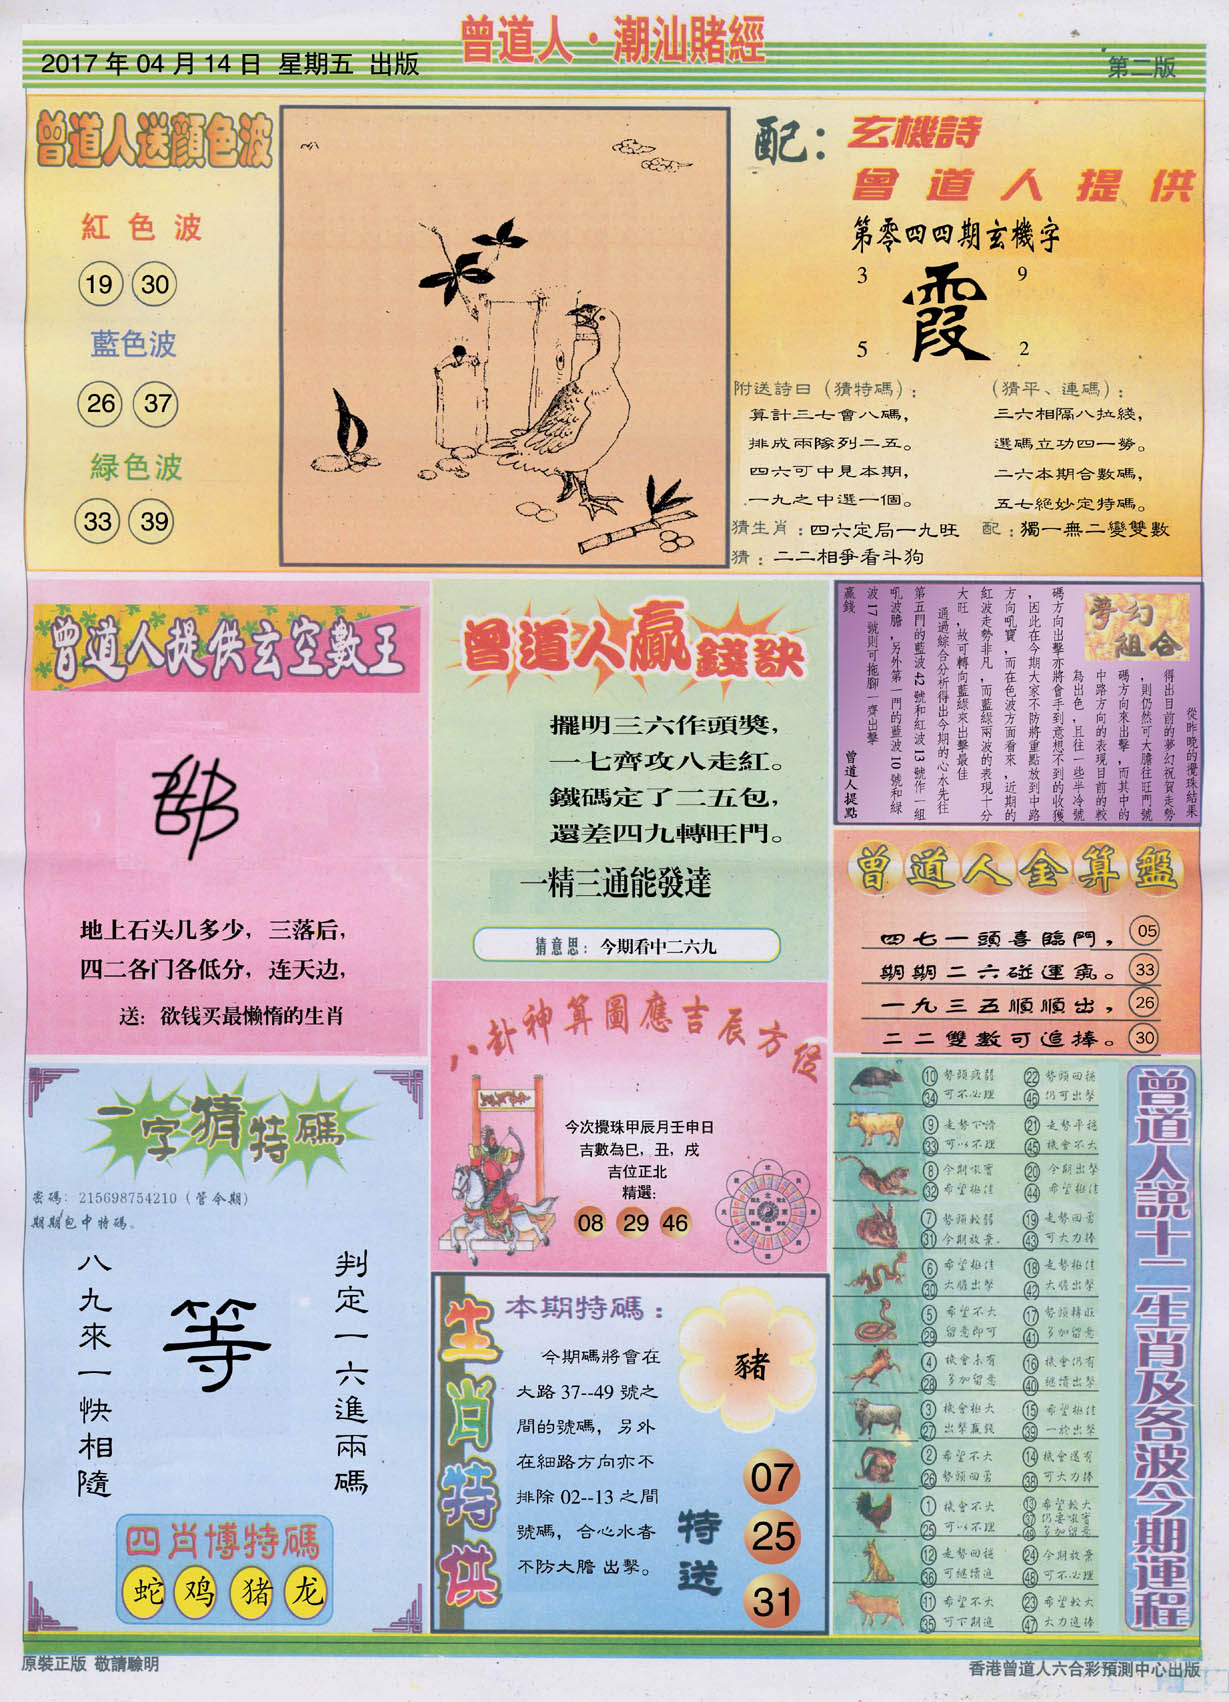 曾道人·潮汕賭經
2017年04月14日 星期五 出版
第二版
曾道人送顏色波
紅色波
19 30
藍色波
26 37
緑色波
33 39
配：玄機詩
曾道人提供
第零四四期玄機字
3 9
霞
5 2
附送詩曰（猜特碼）：
算計三七會八碼，
排成兩隊列二五。
四六可中見本期，
一九之中選一個。
（猜平、連碼）：
三六相隔八拉綫，
選碼立功四一勞。
二六本期合數碼，
五七絕妙定特碼。
猜生肖：四六定局一九旺 配：獨一無二變雙數
猜：二二相爭看斗狗
曾道人提供玄空數王
地上石头几多少，三落后，
四二各门各低分，连天边，
送：欲钱买最懒惰的生肖
曾道人贏錢訣
擺明三六作頭獎，
一七齊攻八走紅。
鐵碼定了二五包，
還差四九轉旺門。
一精三通能發達
猜意思：今期看中二六九
夢幻組合
從昨晚的攪珠結果
得出目前的夢幻祝賀走勢
，則仍然可大膽往旺門號
碼方向來出擊，而其中的
中路方向的表現目前的較
為出色，且往一些半冷號
碼方向出擊亦將會手到意想不到的收獲
，因此在今期大家不防將重點放到中路
方向吼寶，而在色波方面看來，近期的
紅波走勢非凡，而藍綠兩波的表現十分
大旺，故可轉向藍綠來出擊最佳
通過綜合分析得出今期的心水先往
第五門的藍波42號和紅波13號作一組
吼波膽，另外第一門的藍波10號和綠
波17號則可拖腳一齊出擊
贏錢
曾道人提點
曾道人金算盤
四七一頭喜臨門， 05
期期二六碰運氣。 33
一九三五順順出， 26
二二雙數可追捧。 30
八卦神算圖應吉辰方位
今次攪珠甲辰月壬申日
吉數為巳，丑，戌
吉位正北
精選：
08 29 46
一字猜特碼
密碼：215698754210（管今期）
期期包中特碼。
判定一六進兩碼
等
八九來一快相隨
四肖博特碼
蛇 鸡 猪 龙
生肖特供
本期特碼：
今期碼將會在
大路37--49號之
間的號碼，另外
在細路方向亦不
排除02--13之間
號碼，合心水者
不防大膽出擊。
豬
特送
07
25
31
曾道人說十二生肖及各波今期運程
10 34 勢頭疲弱 可不必理
22 46 勢頭回穩 仍可出擊
9 33 走勢下滑 可以不理
21 45 走勢平穩 機會不大
8 32 今期吼寶 希望極佳
20 44 今期出擊 希望極佳
7 31 勢頭較弱 今期放棄
19 43 走勢回勇 可大力捧
6 30 希望極佳 大膽出擊
18 42 走勢極佳 大膽出擊
5 29 希望不大 留意即可
17 41 勢頭轉旺 多加留意
4 28 機會未有 多加留意
16 40 機會仍有 繼續出擊
3 27 機會極大 出擊贏錢
15 39 希望極佳 一於出擊
2 26 希望不大 勢頭回勇
14 38 機會還有 可大力捧
1 25 機會不大 可以不理
13 37 49 希望較大 仍要吼寶 多加留意
12 36 走勢回穩 可繼續追
24 48 今期放棄 可不必理
11 35 希望不大 可下期追
23 47 希望較大 大力追捧
原裝正版 敬請驗明
香港曾道人六合彩預測中心出版